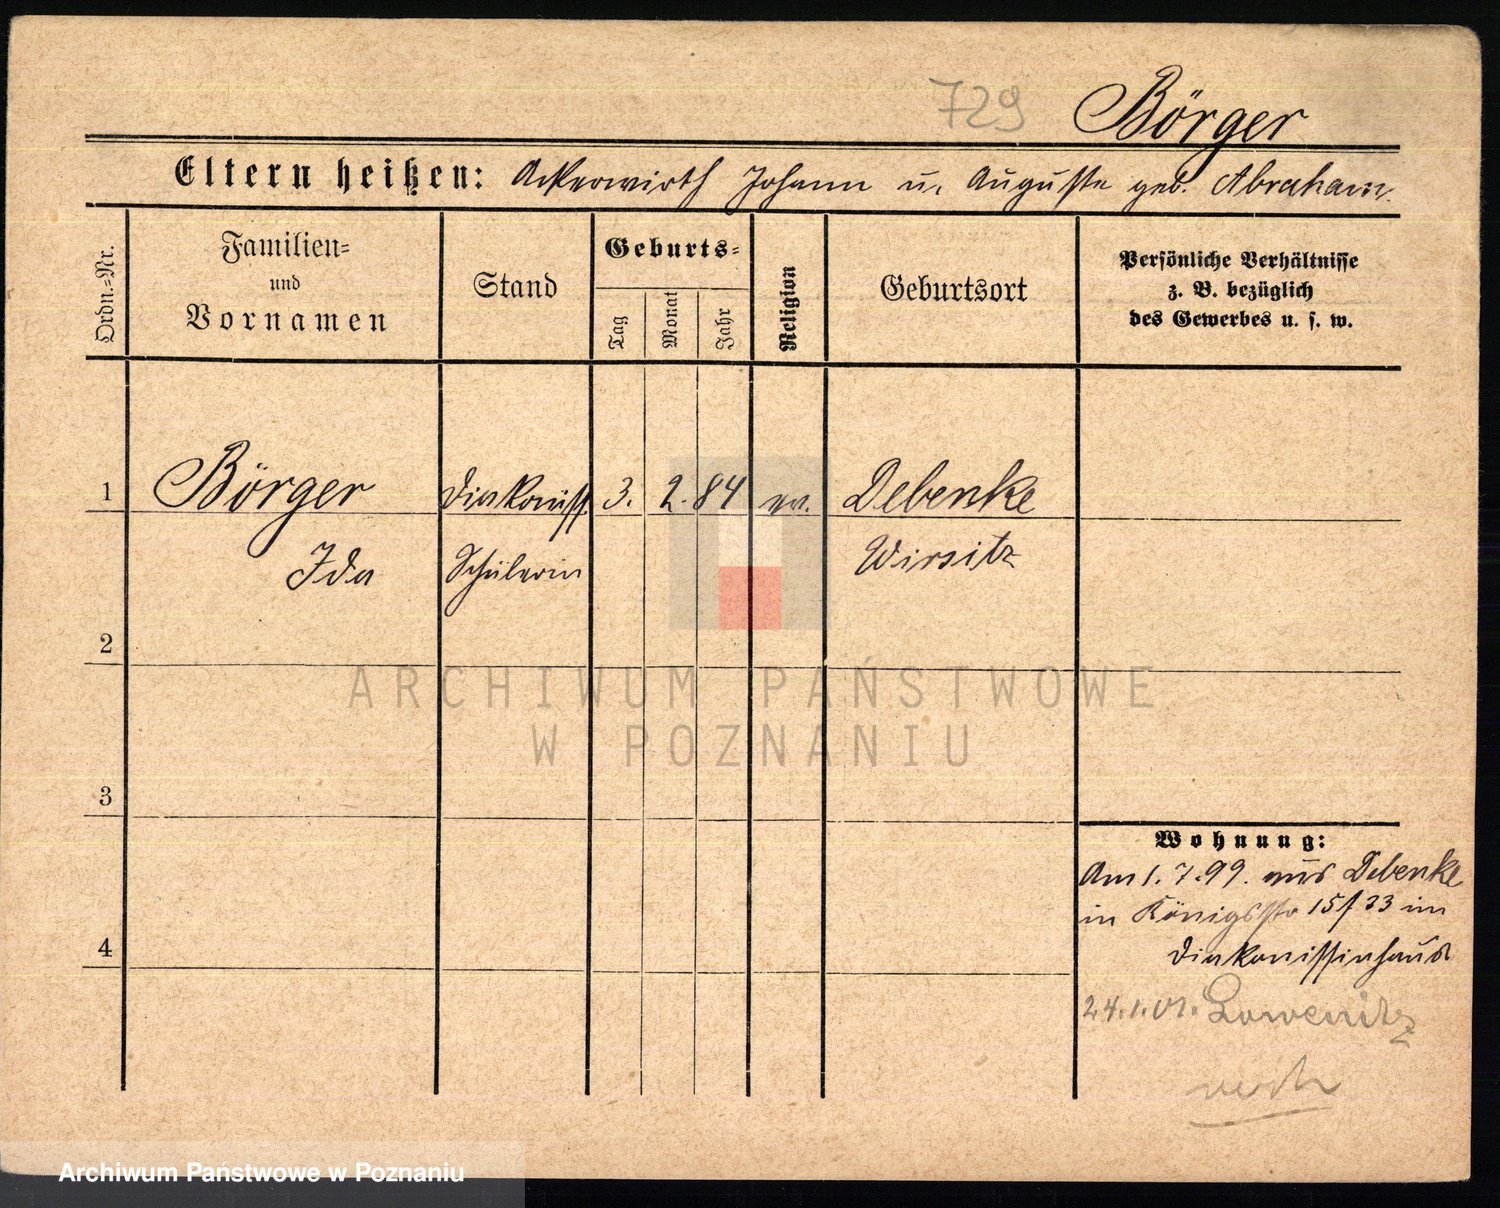 729 Börger
Eltern heißen: Ackerwirth Johann u. Auguste geb. Abraham.
Ordn.-Nr.
Familien-
und
Vornamen
Stand
Geburts-
Tag
Monat
Jahr
Religion
Geburtsort
Persönliche Verhältnisse
z. B. bezüglich
des Gewerbes u. s. w.
1 Börger Diakoniss 3. 2. 84 ev. Debenke
Ida Schülerin Wirsitz
2
ARCHIWUM PAŃSTWOWE
W POZNANIU
3
Wohnung:
Am 1. 7. 99. aus Debenke
in Königsstr 15/ 33 im
4
Diakonissinhaus
24. 1. 01.
Archiwum Państwowe w Poznaniu